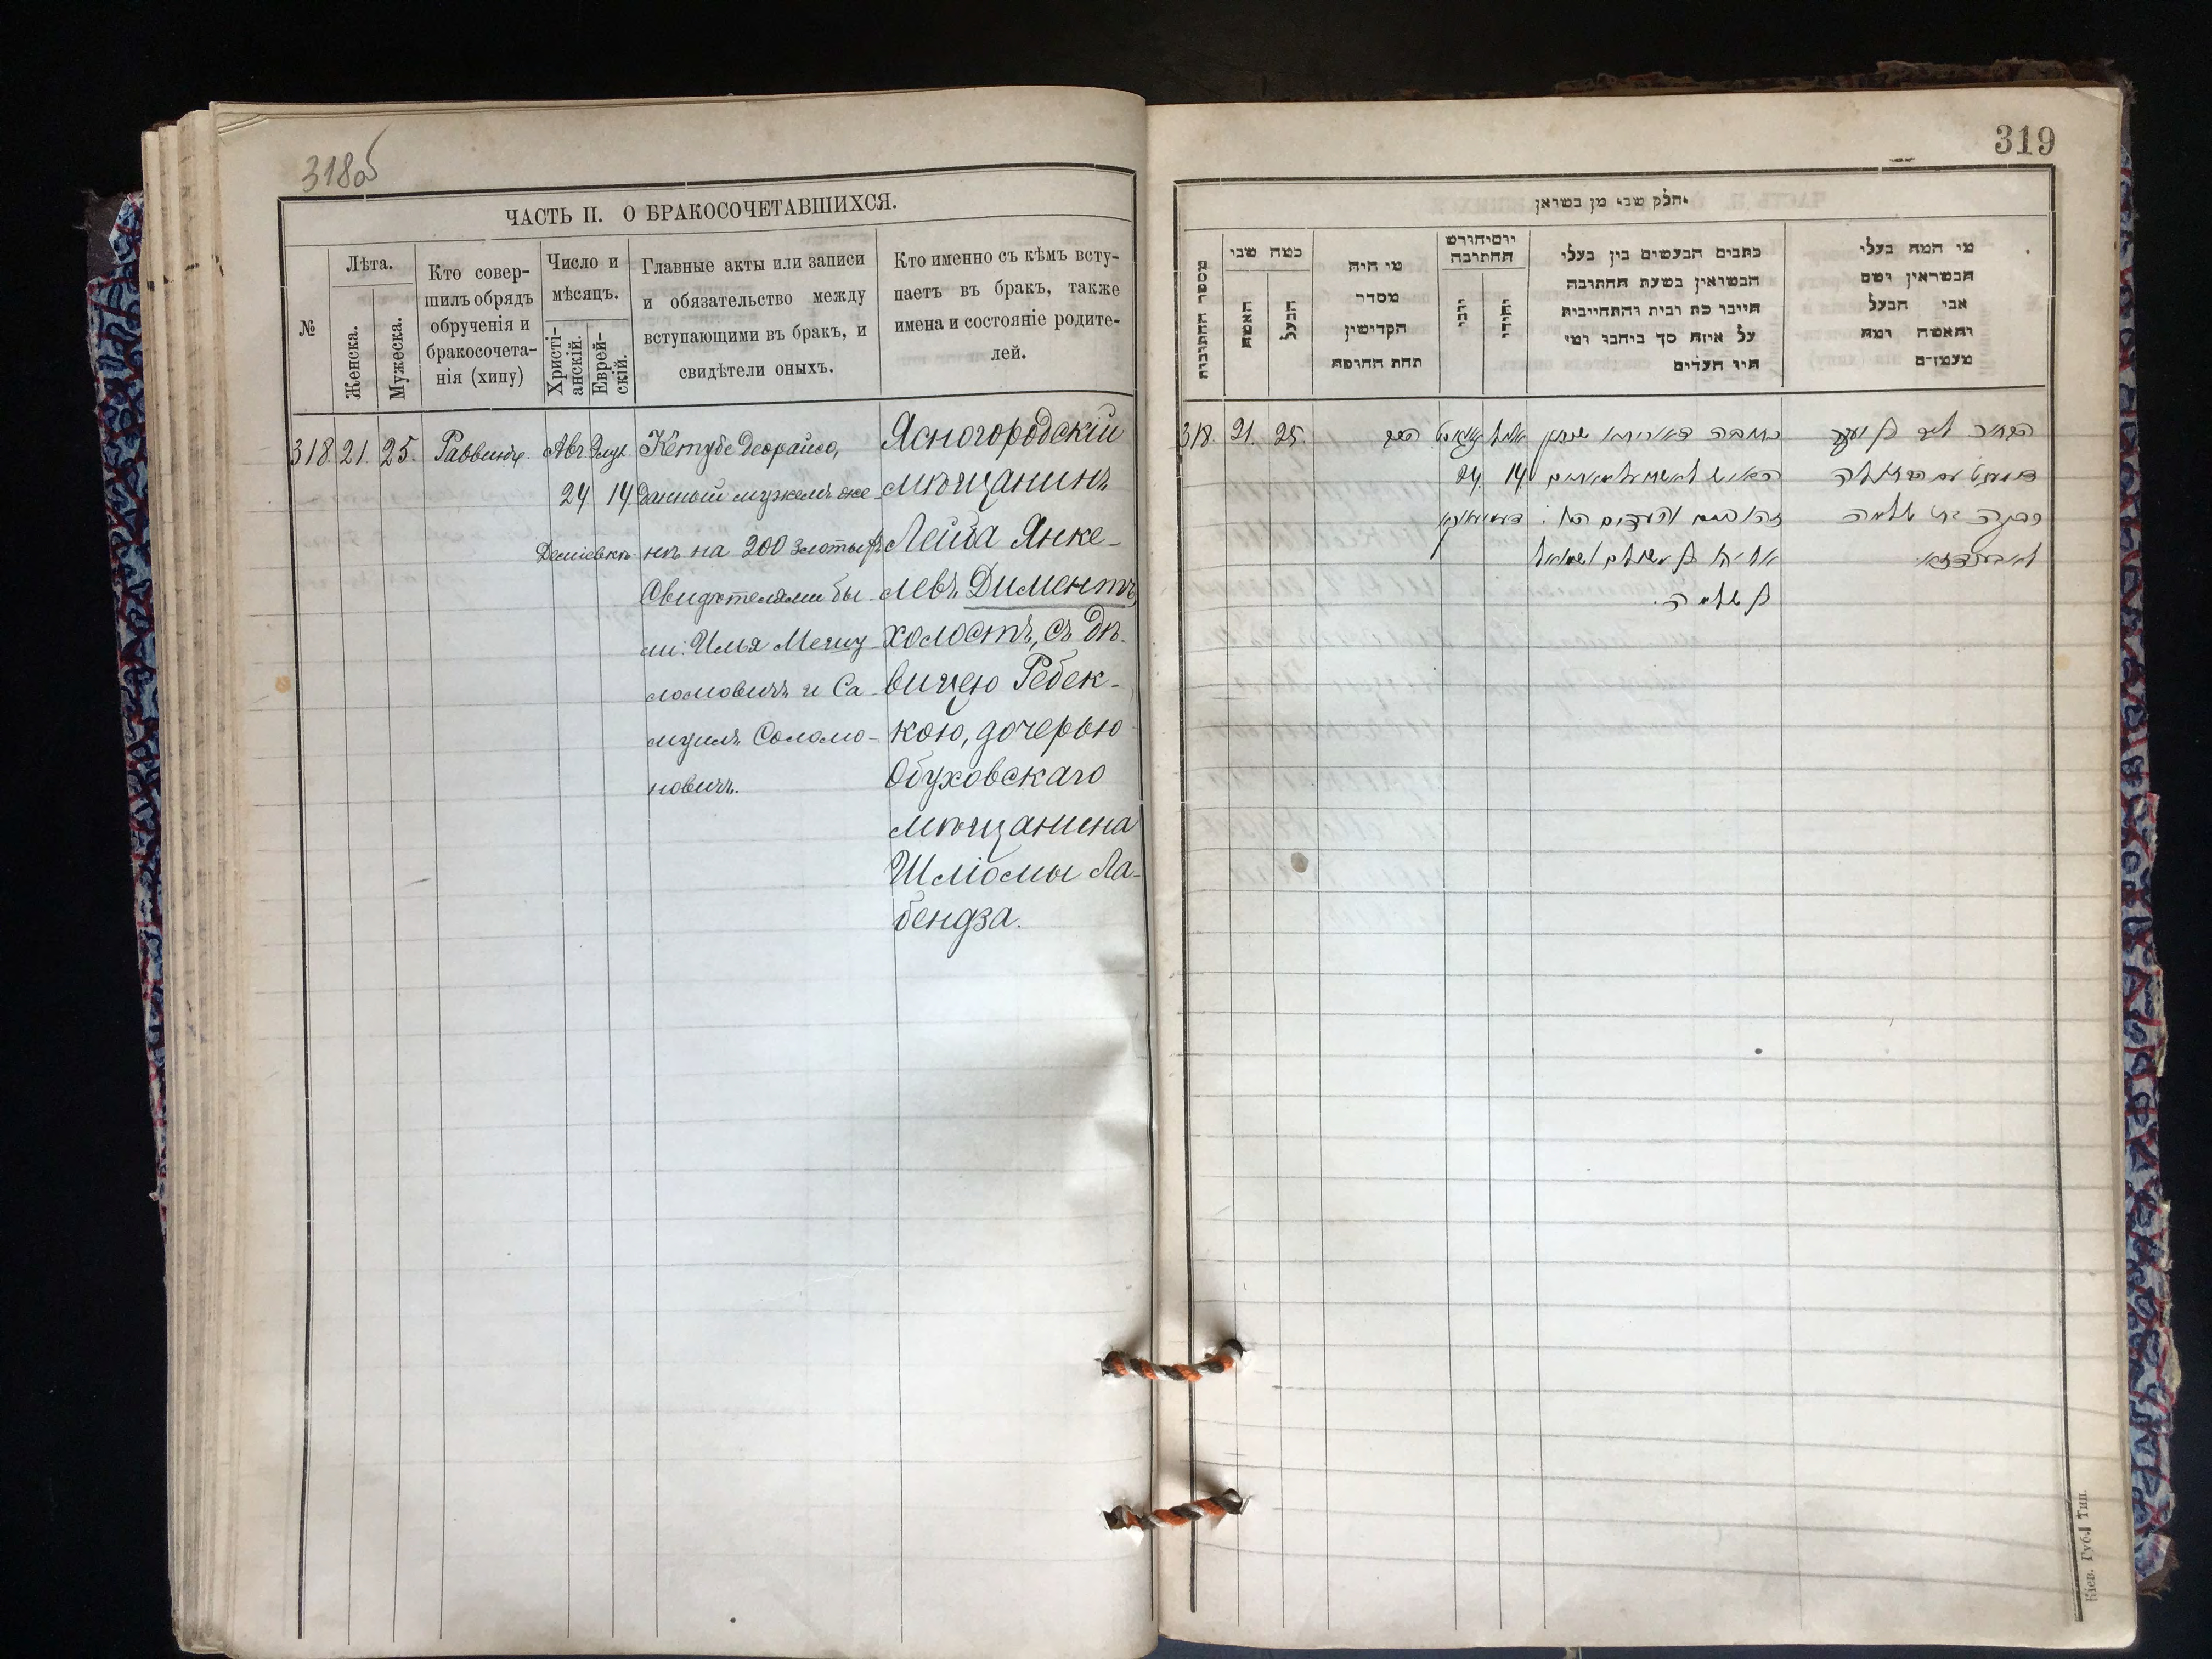 318об
ЧАСТЬ II. О БРАКОСОЧЕТАВШИХСЯ.
№
Лѣта.
Женска.
Мужеска.
Кто совер-
шилъ обрядъ
обрученія и
бракосочета-
нія (хипу)
Число и
мѣсяцъ.
Христі-
анскій.
Еврей-
скій.
Главные акты или записи
и обязательство между
вступающими въ бракъ, и
свидѣтели оныхъ.
Кто именно съ кѣмъ всту-
паетъ въ бракъ, также
имена и состояніе родите-
лей.
318. 21. 25.
Раввинъ.
Авг. Элул.
24 14
Деміевкѣ
Кетубе деорайсо,
данный мужемъ же-
нѣ на 200 злотыхъ
Свидѣтелями бы-
ли: Илья Мешу-
ломовичъ и Са-
муилъ Соломо-
новичъ.
Ясногородскій
мѣщанинъ
Лейба Янке-
левъ Диментъ,
холостъ, съ дѣ-
вицею Ребек-
кою, дочерью
Обуховскаго
мѣщанина
Шліомы Ла-
бендза.
319
חלק שני מן נשואין
מספר החתונות
כמה שני
האשה
הבעל
מי היה
מסדר
הקדושין
תחת החופה
יום וחודש
החתונה
יוני
יהודי
כתבים הנעשים בין בעלי
הנשואין בשעת החתונה
חייבו כת ובית והתחייבות
על איזה סך ניתנו ומי
היו העדים
מי המה בעלי
הנשואין ושם
אבי הבעל
והאשה ומה
מעמדם
318. 21. 25.
אלול
24. 14
כתובה דאורייתא
אליהו בן משולם ושמואל
בן שלמה.
הבחור ליב בן יעקב
דימענט עם הבתולה
רבקה בת שלמה
לאבענדזא.
Кіев. Губ. Тип.